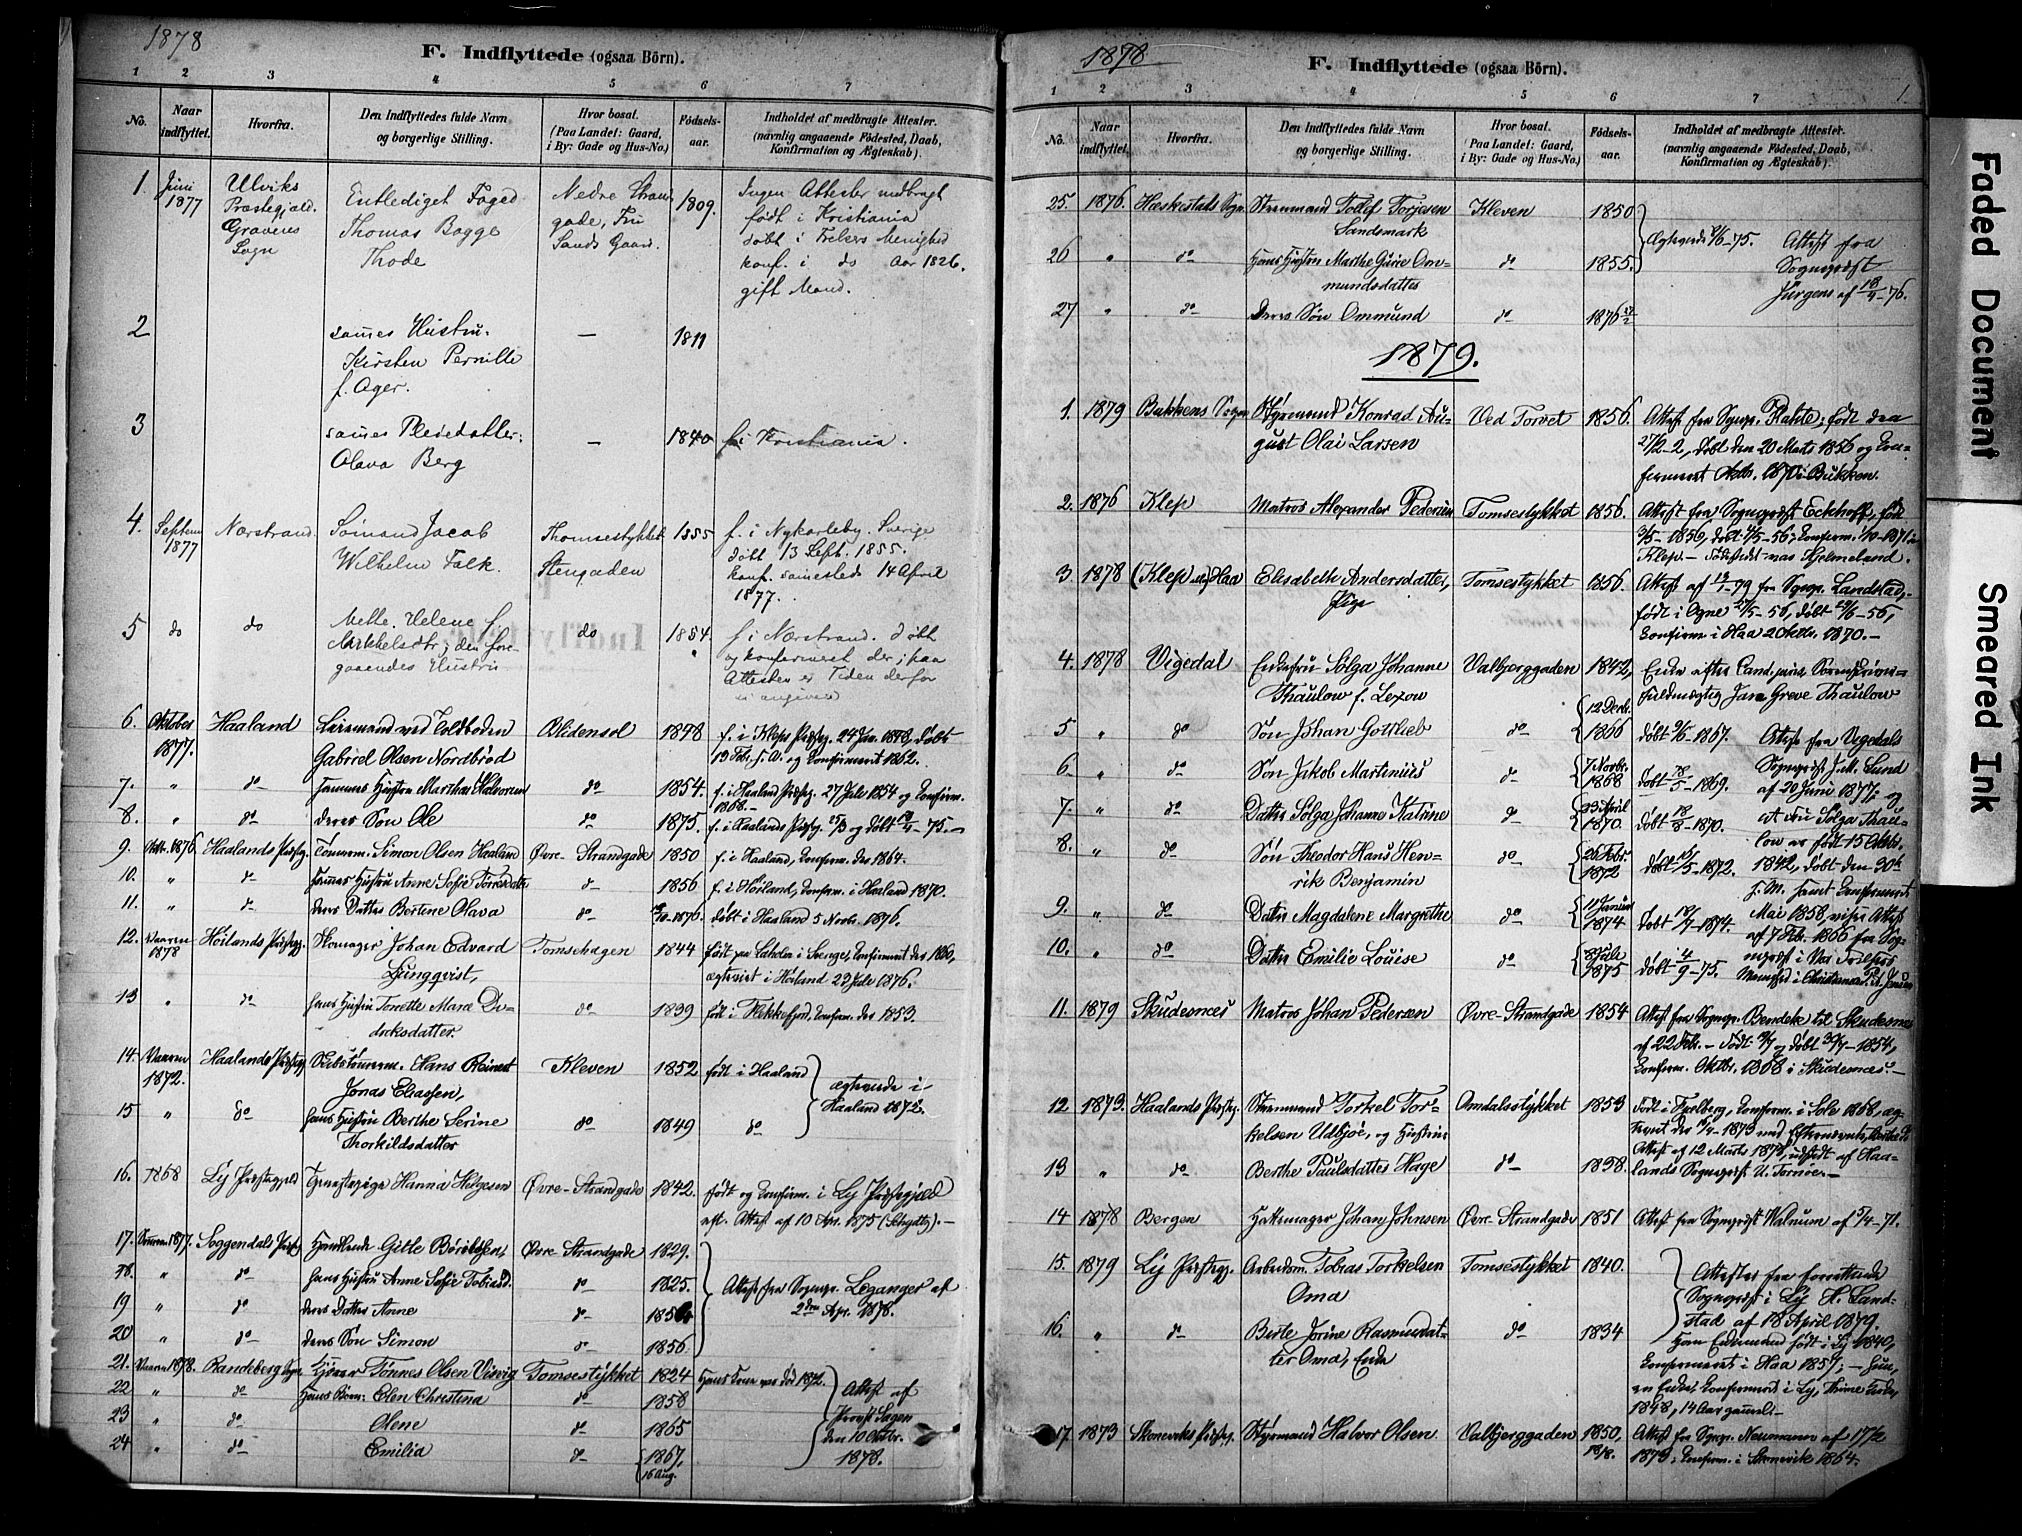 1878
F. Indflyttede (ogsaa Börn).
1 2 3 4 5 6 7
No.
Naar indflyttet.
Hvorfra.
Den Indflyttedes fulde Navn
og borgerlige Stilling.
Hvor bosat.
(Paa Landet: Gaard,
i By: Gade og Hus-No.)
Fødsels-
aar.
Indholdet af medbragte Attester.
(navnlig angaaende Födested, Daab,
Konfirmation og Ægteskab).
1. Juni 1877
Ulviks
Præstegjæld.
Gravens
Sogn
Entlediget Foged
Thomas Bagge
Thode
Nedre Strand
gade, Fru
Sands Gaard.
1809.
Ingen Attester medbragt
født i Kristiania
døbt i Frelsers Menighed
konf. i do Aar 1826.
gift Mand.
2
sammes Hustru.
Kirsten Pernille
f. Ager.
—
1811
3
sammes Pleiedatter:
Olava Berg
—
1840
f. i Kristiania.
4. Septem 1877
Nærstrand
Sømand Jacob
Wilhelm Falk.
Thomsestykket
Stengaden
1855
f. i Nykarleby. Sverige
døbt 13 Sept. 1855.
konf. samesteds 14 April
1877.
5 do do
Mette Helene f.
den fore-
gaaendes Hustru
do
1854.
f. i Nærstrand. døbt
og konfirmeret der; paa
Attesten er Tiden derfor
ei angiven
6. Oktober 1877.
Haaland
ved Toldboden
Gabriel Olsen Nordbrød
Blidensol
1878
f. i Kleps Præsteg. 24 Jan. 1848, døbt
13 Feb. s. A. og konfirmeret 1862.
7. " do Sammes Hustru Marthas Halvorsen do 1854.
f. i Haaland Præsteg. 27 Juli 1854 og konfirm.
1868.
8. " do deres Søn Ole do 1875.
f. i Haalands Præsteg. 25/3 og døbt 18/4 - 75.
9. Oktbr. 1876 Haalands Præsteg. Tømrerm. Simon Olsen Haaland Øvre-Strandgade 1850 f. i Haaland, konfirm. der 1864.
10. " do Sammes Hustru Anne Sofie Torkelsdatter do 1856 f. i Høiland, konfirm. i Haaland 1870.
11. " do deres Datter Bertine Olava do /10-1876. døbt i Haaland 5 Novbr. 1876.
12. Vaaren 1878
Høilands Præsteg.
Skomager Johan Edvard
Ljungqvist,
Tomsehagen
1844
født paa Laholm i Sverige, konfirmeret der 1860,
ægteviet i Høiland 23 Juli 1876.
13 " do
hans Hustru Tonette Mara Di-
derksdatter.
do
1839
født i Flekkefjord, konfirm. der 1853.
14. Vaaren 1872.
Haalands Præsteg.
Skibstømrerm. Hans Reinert
Jonas Eliassen,
Kleven
1852
født i Haaland
ægteviede i
Haaland 1872.
15 " do
hans Hustru Berthe Serine
Thorkildsdatter
do 1849 do
16. 1868
Ly Præstegjeld
Tjenestepige Hanna Helgesen
Øvre-Strandgade
1842.
født og konfirm. i Ly Præstegjeld
eft. Attest af 10 Apr. 1875 (Schyøtty).—
17. 1877. Soggendals Præsteg. Gitle Børildsen, Øvre Strandgade 1829.
18. " do hans Hustru Anne Sofie Tobiasd. do 1825.
Attest fra Sognepr. Leganger af
2den Apr. 1878.
19 " do deres Datter Anne do 185
20 " do deres Søn Simon do 1856
21. Vaaren 1878. Randeberg Sogn Tønnes Olsen Viswig Tomsestykket 1824 Hans Kone var død 1872.
22 " do Hans Børn: Elen Christina do 1858
Attest af
Provst Sagen
den 10 Oktbr.
1878.
23 " do Olene do 1865
24 " do Emilia do 1867,
16 Aug.
1878
F. Indflyttede (ogsaa Börn).
1 2 3 4 5 6 7
1.
No.
Naar indflyttet.
Hvorfra.
Den Indflyttedes fulde Navn
og borgerlige Stilling.
Hvor bosat.
(Paa Landet: Gaard,
i By: Gade og Hus-No.)
Födsels-
aar.
Indholdet af medbragte Attester.
(navnlig angaaende Födested, Daab,
Konfirmation og Ægteskab).
25. 1876. Heskestads Sogn. Styrmand Tollef Torjesen
Sandsmark
Kleven 1850
Ægteviede /6-75. Attest fra
Sognepræst
Jürgens af 18/4-76.
26 " do Hans Hustru Marthe Gurie Om-
mundsdatter
do 1855.
27 " do Deres Søn Ommund do 1876
1879.
1. 1879 Bakkens Sogn Styrmand Konrad Au-
gust Olai Larsen
Ved Torvet 1856.
Attest fra Sognepr. Rahte; født den
døbt den 20 Marts 1856 og kon-
firmeret Oktbr. 1870 i Bakken.
2. 1876 Klep Matros Alexander Pedersen Tomsestykket 1856.
Attest fra Sognepræst Eckhoff, født
/5-1856, døbt /5-56; konfirm. /10-1871 i
Klep. — Fødestedet var Hjelmeland.
3 1878 (Klep og) Haa Elisabeth Andersdatter,
Pige
Tomsestykket 1856
Attest af /1-79 fra Sognepr. Landstad,
født i Ogne /5-56, døbt /6-56,
konfirm. i Haa 2 Oktbr. 1870.—
4. 1878 Vigedal Enkefru Sølga Johanne
Thaulow f. Lexow
Valbjerggaden 1842,
Enke efter Cand. juris
fuldmægtig Jan Greve Thaulow
5 " do Søn Johan Gottlieb do 12 Decb. 1866 døbt 9/6-1867.
Attest fra Vigedals
Sognepræst J. M. Lund
af 20 Juni 1877, og
at Fru Sølga Thau-
low er født 15 Oktbr.
1842, døbt den 30te
s. M. samt konfirmeret
Mai 1858, viser Attest
af 7 Feb. 1866 fra Sog-
nepræst i Vor Frelsers
Menighed i Christiania
6. " do Søn Jakob Martinius do 7 Novbr. 1868 døbt /5-1869.
7. " do Datter Sølga Johanne Katrine do 23 April 1870 døbt 18/8-1870.
8. " do Søn Theodor Hans Hen-
rik Benjamin
do 26 Febr. 1872 døbt /5-1872.
9. " do Datter Magdalene Margrethe do 11 Januar 1874 døbt /7-1874.
10. " do Datter Emilie Louise do 8 Juli 1875 døbt 4/9-75.
11. 1879 Skudesnæs Matros Johan Pedersen Øvre-Strandgade 1854
Attest fra Sognepr. Bendeke til Skudesnæs
af 22 Febr. — Født /7 og døbt 30/7-1854,
konfirm. Oktbr. 1868 i Skudesnæs.—
12 1873. Haalands Præsteg. Styrmand Torkel Tor-
kelsen Udbjøe, og Hustru
Omdalsstykket 1853
Født i Fjelberg, konfirm. i Sole 1868, æg-
teviet der /4-1873 med
Attest af 12 Marts 1873, udstedt af Haa-
lands Sognepræst U. Tornøe.—
13 " do Berthe Paulsdatter Hage do 1838.
14 1878 Bergen Hattemager Johan Johnsen Øvre-Strandgade 1851 Attest fra Sognepræst Walnum af /4-71.
15. 1879 Ly Præstegj. Arbeidsm. Tobias Torkelsen
Oma
Tomsestykket 1840.
Attester fra forrettende
Sognepræst i Ly H. Land-
stad af 18 April 1879.
Ham Enkemand født i Ly 1840,
konfirmeret i Haa 1857; — Hun,
en Enke, konfirmeret i Ly,
1848, 14 Aar gammel.—
16. " do Berte Jorine Rasmusdat-
ter Oma, Enke
do 1834
17. 1873 Skoneviks Præsteg. Styrmand Halvor Olsen Valbjerggaden 1850,
18/8.
Attest fra Sognepr. Neumann af 17/2
1873; konfirm. i Skonevik 1864.
Faded Document
Smeared Ink